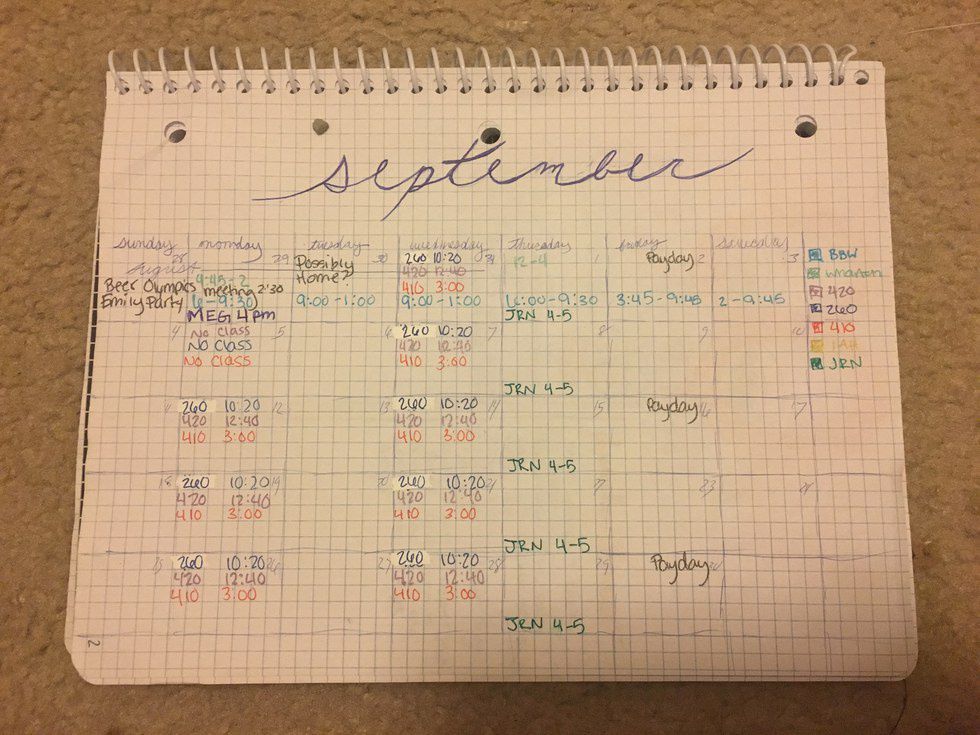 september
sunday monday tuesday wednesday thursday friday saturday
28 29 30 31 1 2 3
August
Beer Olympics
Emily Party
4:45-2
meeting 2:30
6-9:30
MEG 4pm
Possibly
Home?
9:00-1:00
260 10:20
420 12:40
410 3:00
9:00-1:00
12-4
6:00-9:30
JRN 4-5
Payday
3:45-9:45
2-9:45
BBW
420
260
410
JRN
4 5 6 7 8 9 10
No class
No class
No class
260 10:20
420 12:40
410 3:00
JRN 4-5
11 12 13 14 15 16 17
260 10:20
420 12:40
410 3:00
260 10:20
420 12:40
410 3:00
JRN 4-5
Payday
18 19 20 21 23
260 10:20
420 12:40
410 3:00
260 10:20
420 12:40
410 3:00
JRN 4-5
26 27 28 29
260 10:20
420 12:40
410 3:00
260 10:20
420 12:40
410 3:00
JRN 4-5
Payday
2